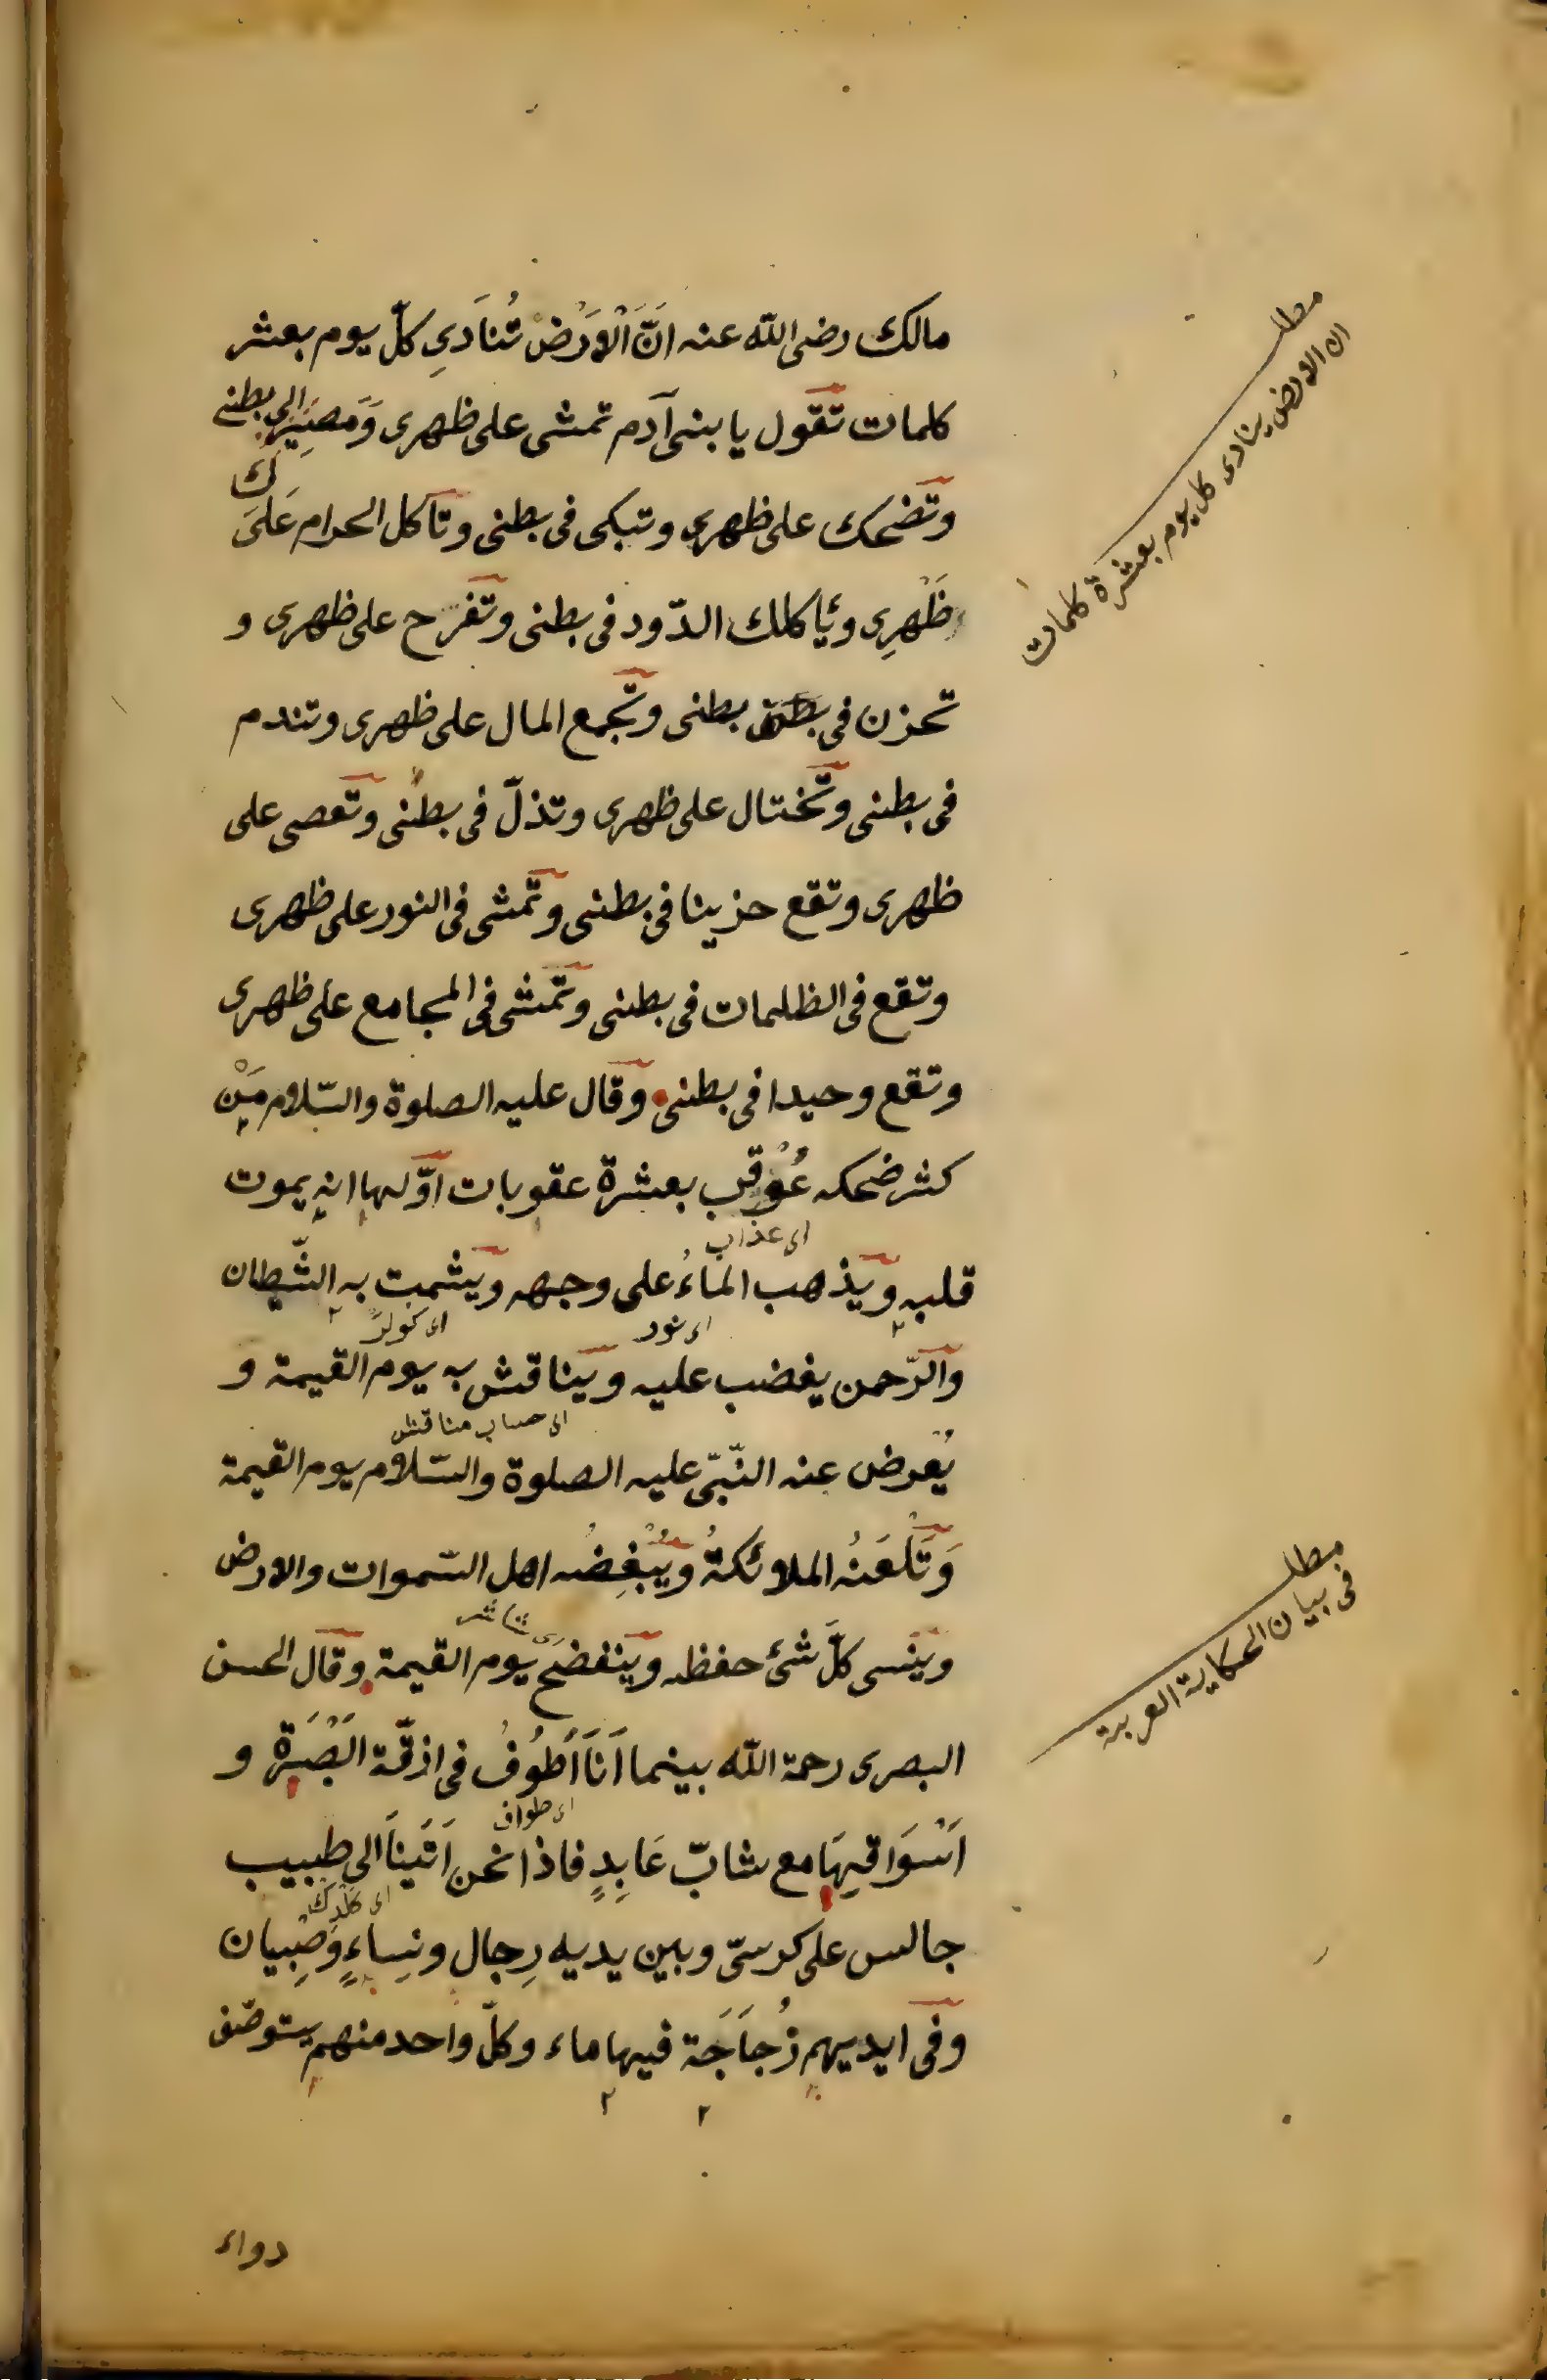 مالك رضى الله عنه اَنَّ اَلْاَرْضَ تُنَادِى كلّ يوم بعشر
كلمات تقول يا بنى آدم تمشى على ظهرى وَمَصِيرك الى بطنى
وتضحك على ظهرى وتبكى فى بطنى وتأكل الحرام عَلَى
ظَهْرِى ويأكلك الدّود فى بطنى وتفرح على ظهرى و
تحزن فى بطنى وتجمع المال على ظهرى وتندم
فى بطنى وتختال على ظهرى وتذلّ فى بطنى وتعصى على
ظهرى وتقع حزينا فى بطنى وتمشى فى النور على ظهرى
وتقع فى الظلمات فى بطنى وتمشى فى المجامع على ظهرى
وتقع وحيدا فى بطنى وقال عليه الصلوة والسّلام مَنْ
كثر ضحكه عُوْقِب بعشرة عقوبات اوّلها انه يموت
اى عذاب
قلبه ويذهب الماءُ على وجهه ويشمت به الشّيطان
اى نور
والرّحمن يغضب عليه ويناقش به يوم القيمة و
اى حساب مناقش
يُعرض عنه النّبّى عليه الصلوة والسّلام يوم القيمة
وَتَلْعَنُه الملائكةُ ويُبْغِضُه اهل السّموات والارض
وينسى كلَّ شئ حفظه وينفضح يوم القيمة وقال الحسن
البصرى رحمة الله بينما اَنَا اَطُوفُ فى ازقّة اَلْبَصْرَة و
اى طواف
اَسْوَاقِهَا مع شابّ عَابِدٍ فاذا نحن اَتَيْنَا الى طبيب
جالس على كرسىّ وبين يديه رِجال ونِساءٍ وَصِبيان
وفى ايديهم زُجَاجَة فيها ماء وكلّ واحد منهم يستوصف
دواء
مطلب
ان الارض ينادى كل يوم بعشرة كلمات
مطلب
فى بيان الحكاية الغريبة